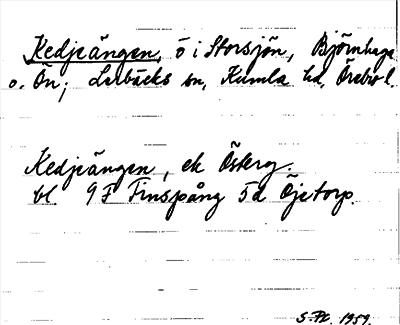 Kedjeängen, ö i Storsjön, Björnhaga
o. Ön; Lerbäcks sn, Kumla hd, Örebro l.
Kedjeängen, ek Österg.
bl. 9 F Finspång 5d Öjetorp.
S-Pl. 1959.